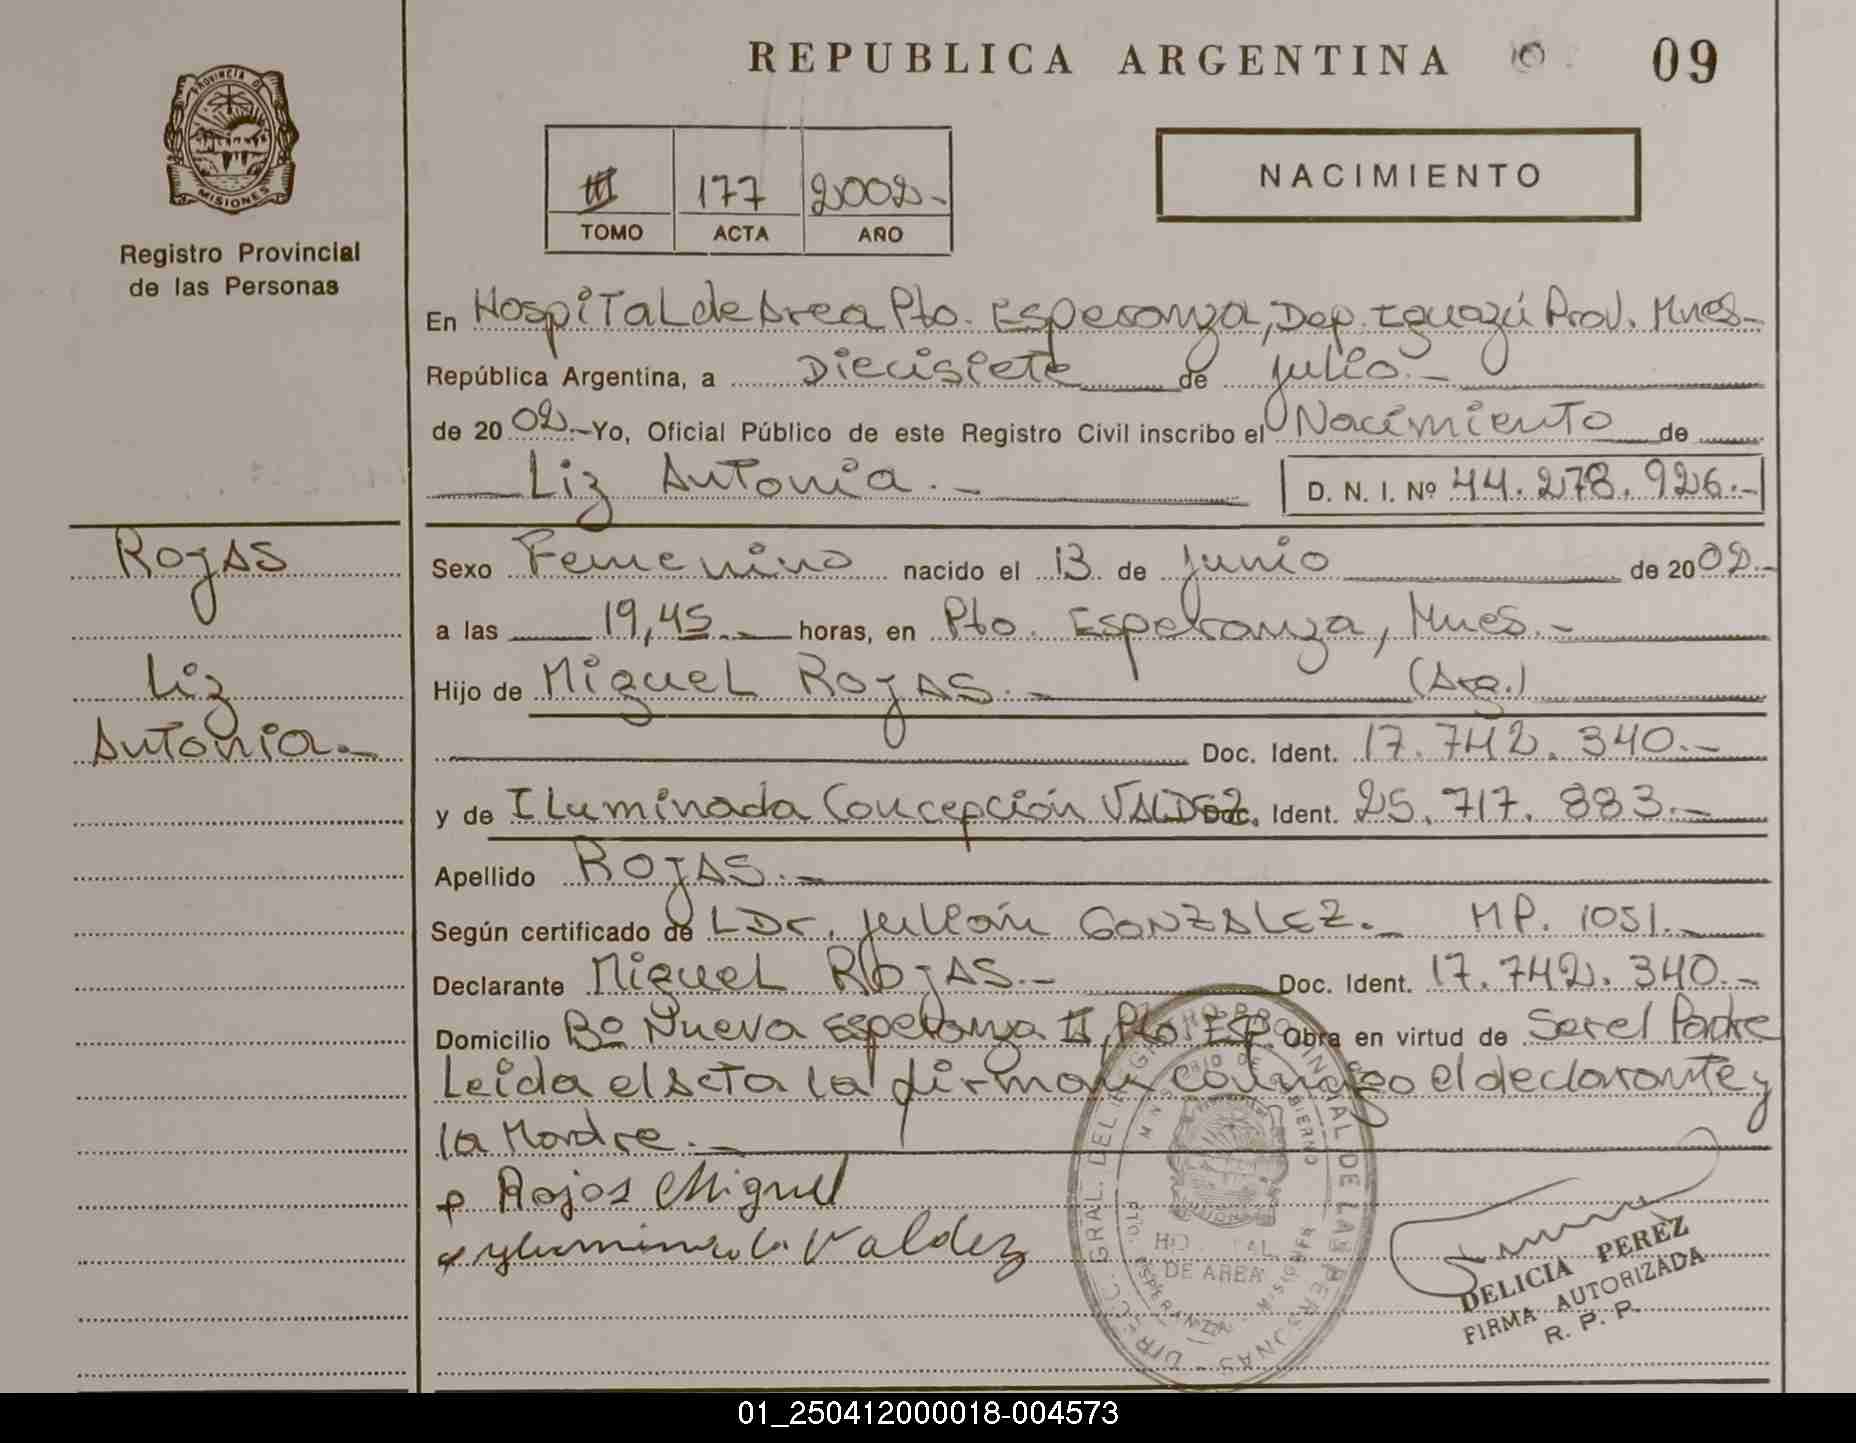 REPUBLICA ARGENTINA 09
PROVINCIA DE
MISIONES
Registro Provincial
de las Personas
III 177 2002.-
TOMO ACTA AÑO
NACIMIENTO
En Hospital de Area Pto. Esperanza, Dep. Iguazú Prov. Mnes-
República Argentina, a Diecisiete de julio.-
de 2002.- Yo, Oficial Público de este Registro Civil inscribo el Nacimiento de
Liz Antonia.-
D. N. I. Nº 44.278.926.-
Rojas
Liz
Antonia.-
Sexo Femenino nacido el 13 de junio de 2002.-
a las 19,45.- horas, en Pto. Esperanza, Mnes.-
Hijo de Miguel Rojas.- (Arg.)
Doc. Ident. 17.742.340.-
y de Iluminada Concepción VALDEZ Doc. Ident. 25.717.883.-
Apellido Rojas.-
Según certificado de LDr. Julián GONZALEZ.- MP. 1051.-
Declarante Miguel Rojas.- Doc. Ident. 17.742.340.-
Domicilio Bº Nueva Esperanza II, Pto. Esp. Obra en virtud de Ser el Padre
Leida el Acta la firman conmigo el declarante y
la Madre.-
Rojas Miguel
Valdez
DIRECC. GRAL. DEL REGISTRO PROVINCIAL DE LAS PERSONAS
HOSPITAL
DE AREA
PTO. ESPERANZA - MISIONES
DELICIA PEREZ
FIRMA AUTORIZADA
R. P. P.
01_250412000018-004573